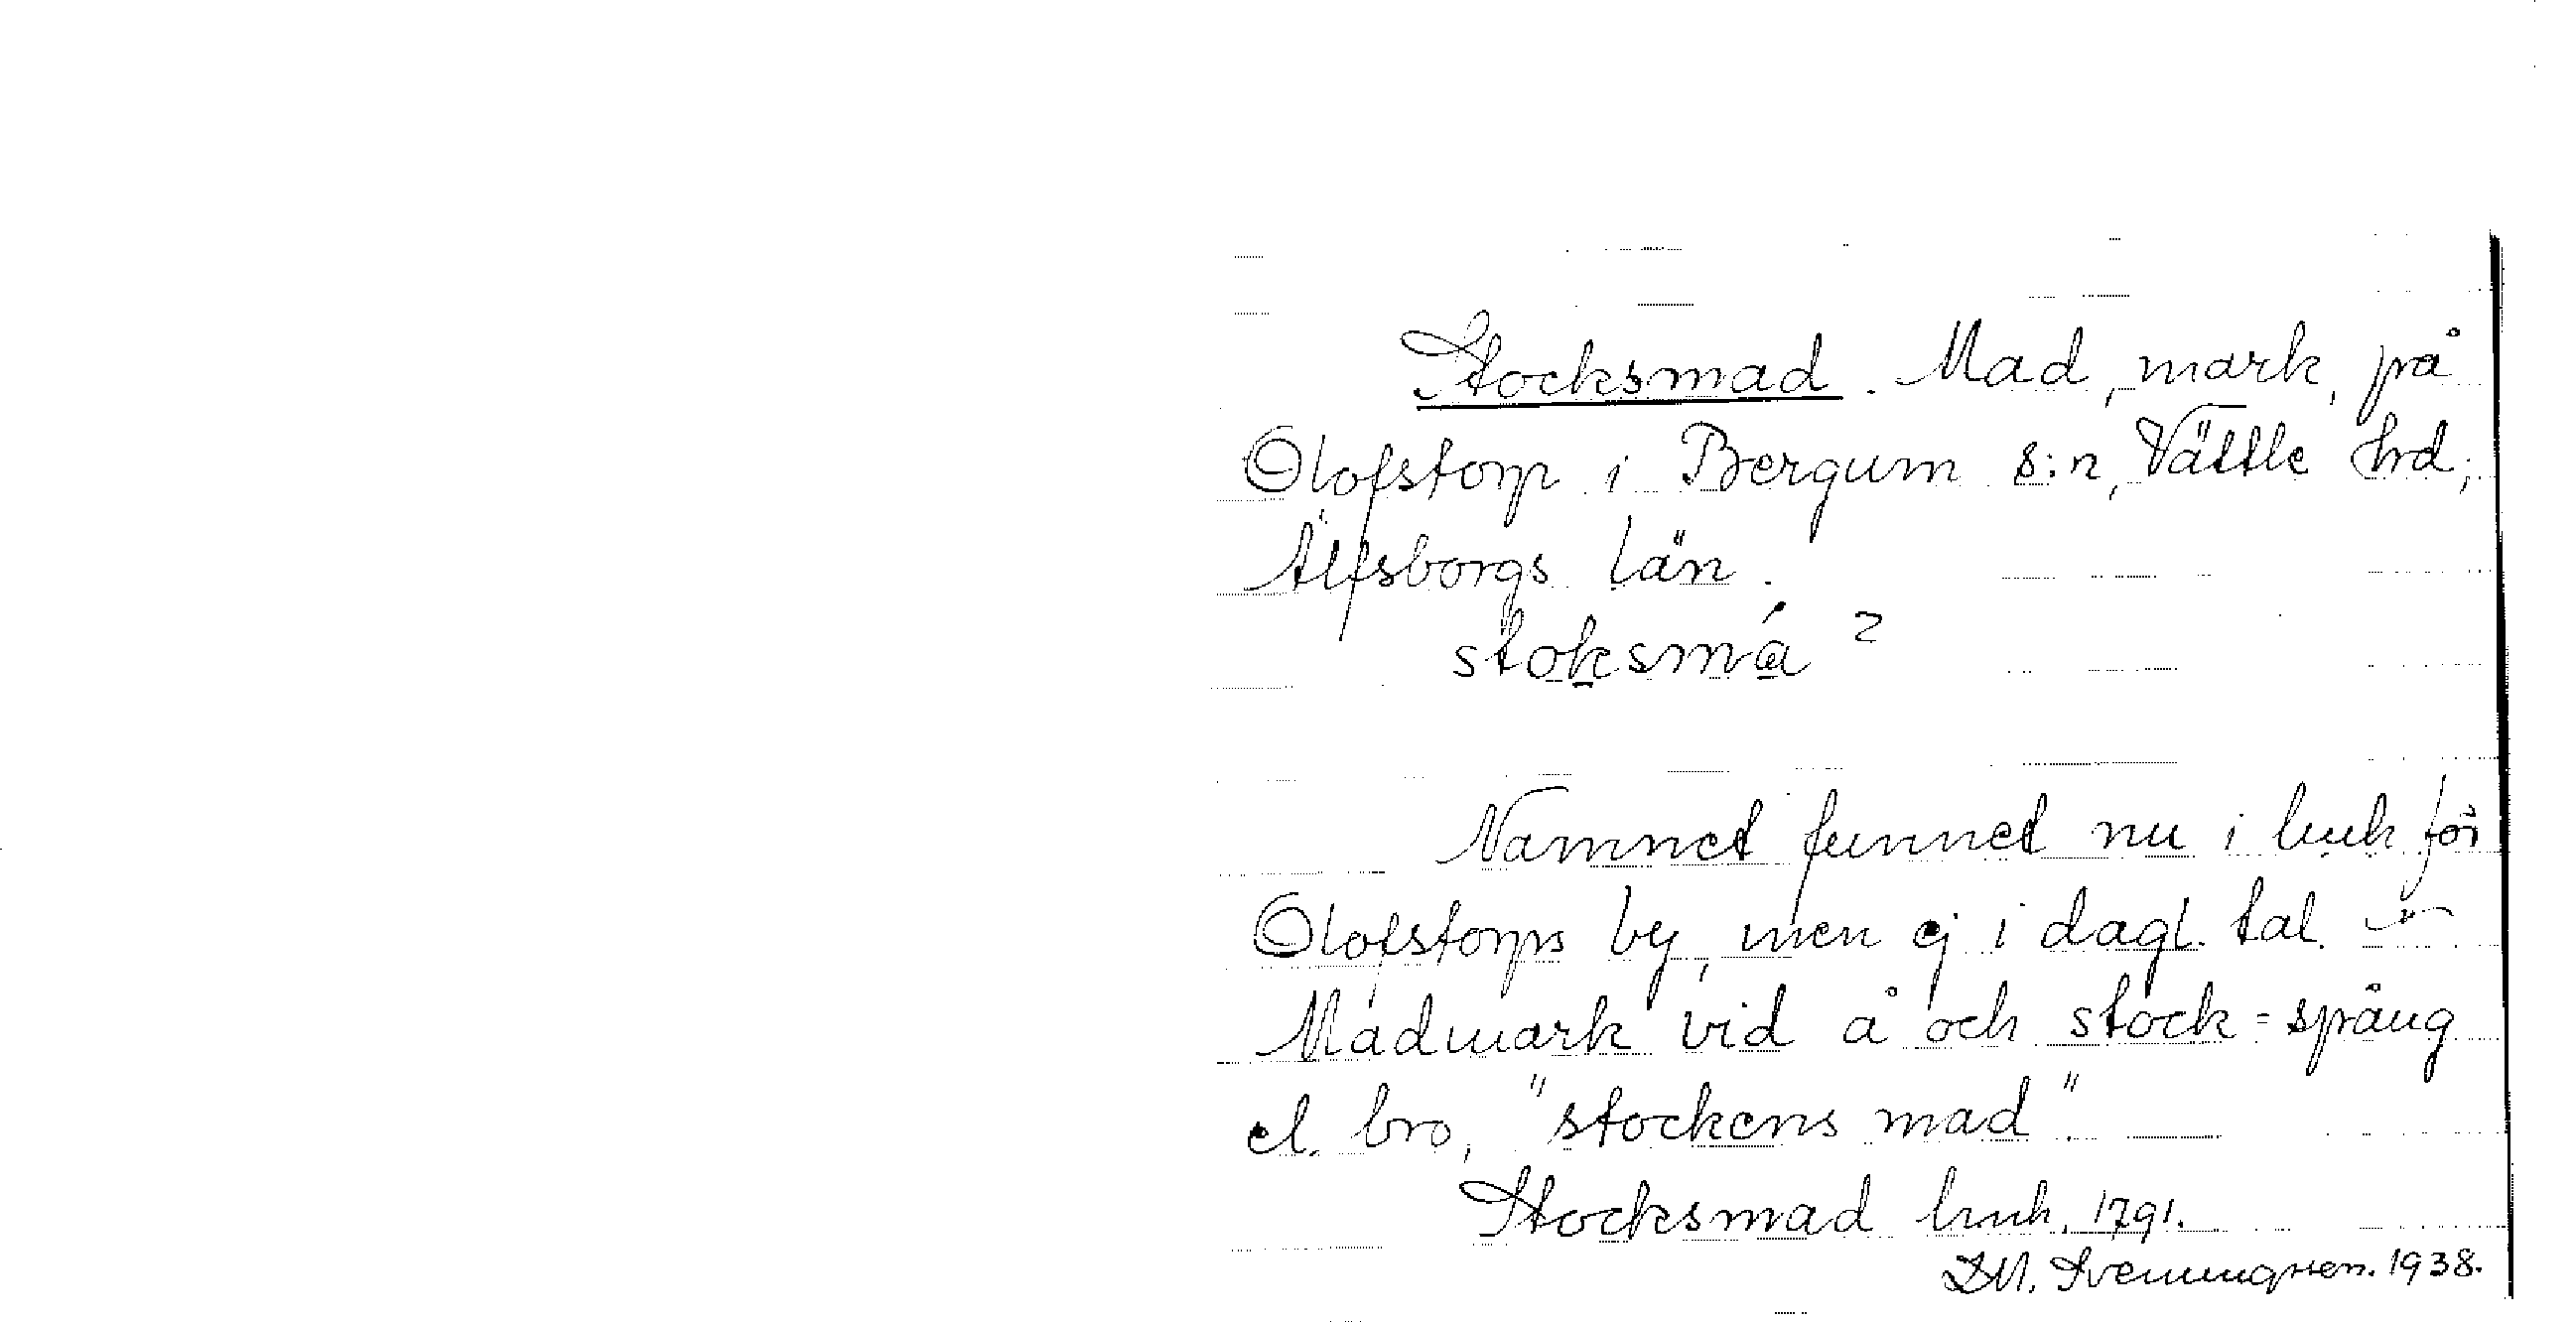 Stocksmad. Mad, mark, på
Olofstorp i Bergum s:n, Vättle hrd,
Älfsborgs län.
stoksmá 2
Namnet funnet nu i bruk för
Olofstorps by, men ej i dagl. tal.
Madmark vid å och stock = spång
el. bro, "stockens mad".
Stocksmad bruk. 1791.
D.M. Svenungsson. 1938.